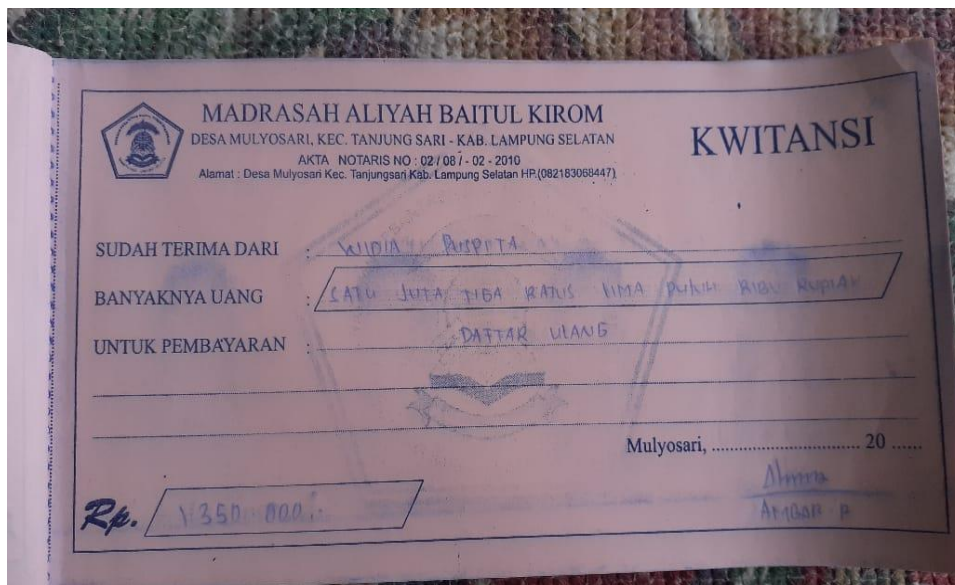 MADRASAH ALIYAH BAITUL KIROM
DESA MULYOSARI, KEC. TANJUNG SARI - KAB. LAMPUNG SELATAN
AKTA NOTARIS NO : 02 / 08 / - 02 - 2010
Alamat : Desa Mulyosari Kec. Tanjungsari Kab. Lampung Selatan HP.(082183068447)
KWITANSI
SUDAH TERIMA DARI : WIDIA PUSPITA
BANYAKNYA UANG : SATU JUTA TIGA RATUS LIMA PULUH RIBU RUPIAH
UNTUK PEMBAYARAN : DAFTAR ULANG
Mulyosari, ................................ 20 ......
Rp. 1.350.000.-
AMBAR P